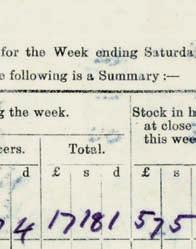 for the Week ending Saturda
e following is a Summary :—
g the week.
Stock in h
at close
this wee
cers.
Total.
d £ s d £ s
4 17 18 1 575